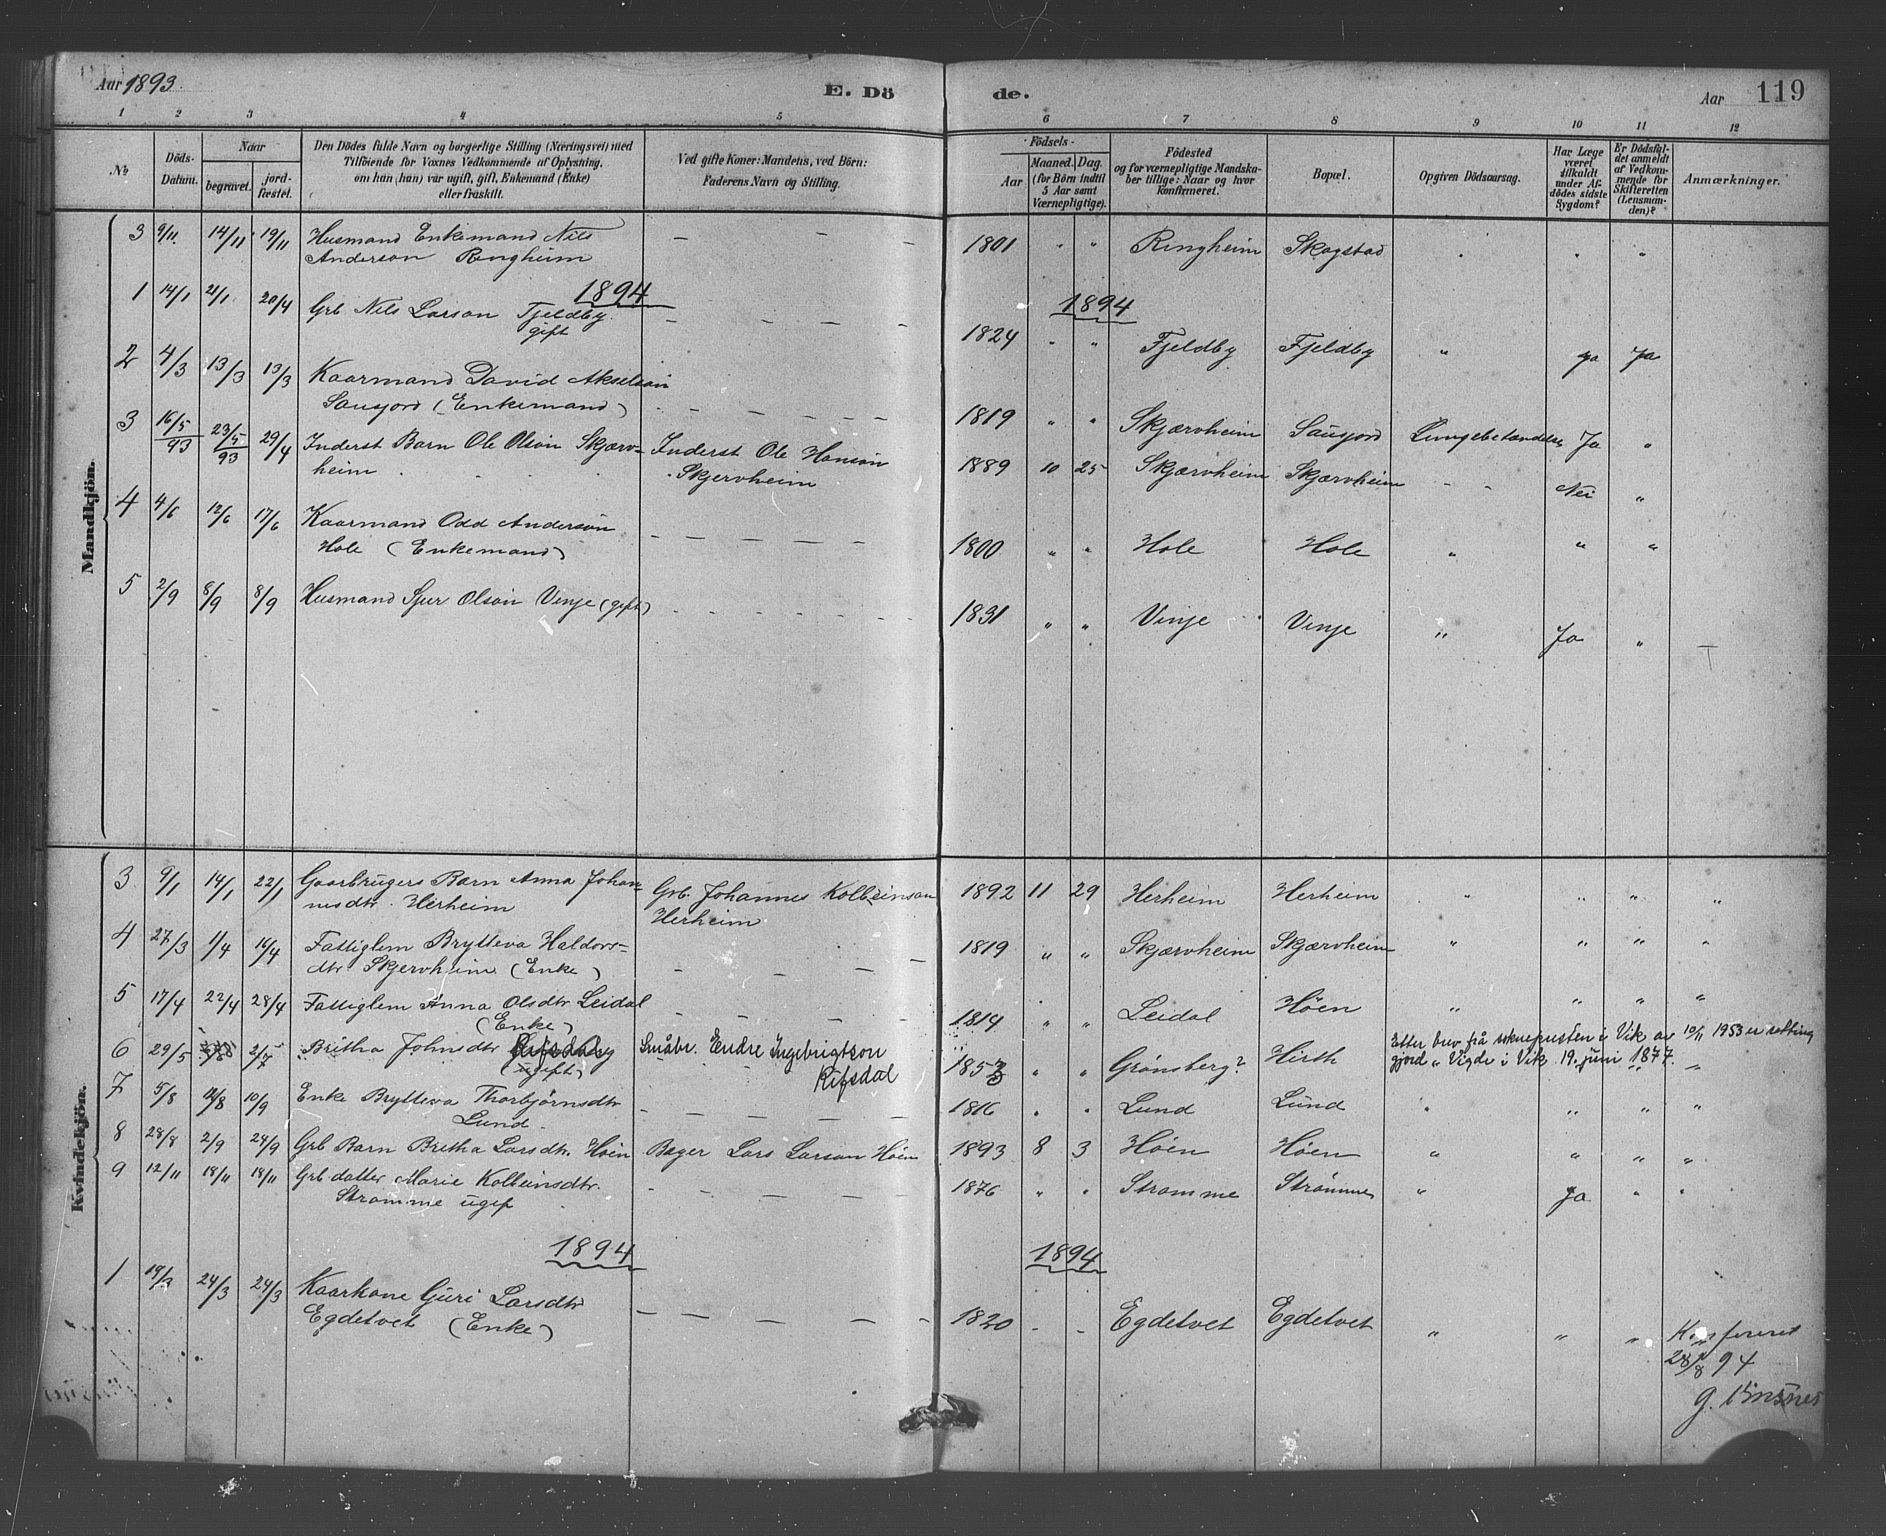 Aar 1893. E. Dö de. Aar 119
1 2 3 4 5 6 7 8 9 10 11 12
No
Döds-Datum.
Naar
begravet.
jord-fæstet.
Den Dödes fulde Navn og borgerlige Stilling (Næringsvei) med
Tilföiende for Voxnes Vedkommende af Oplysning,
om han (hun) var ugift, gift, Enkemand (Enke)
eller fraskilt.
Ved gifte Koner: Mandens, ved Börn:
Faderens Navn og Stilling.
Födsels-
Aar
Maaned. Dag.
(for Börn indtil
5 Aar samt
Værnepligtige).
Födested
og for værnepligtige Mandska-
ber tillige: Naar og hvor
Konfirmeret.
Bopæl.
Opgiven Dödsaarsag.
Har Læge
været
tilkaldt
under Af-
dödes sidste
Sygdom?
Er Dödsfal-
det anmeldt
af Vedkom-
mende for
Skifteretten
(Lensman-
den)?
Anmærkninger.
Mandkjön.
3 9/11. 14/11 19/11 Husmand Enkemand Nils — — — 1801 " " Ringheim Skogstad " " "
Anderson Ringheim
1894 1894
1 14/1 21/1 20/4 Grb Nils Larson Fjeldby. — — — — 1824 " " Fjeldby Fjeldby " ja Ja
gift
2 4/3 13/3 13/3 Kaarmand David Akselson
Sausjord (Enkemand) 1819 " " Skjærvheim Sausjord Lungebetændelse Ja "
3 16/5 93 23/5 93 29/4 Inderst Barn Ole Olson Skjærv- Inderst Ole Hanson 1889 10 25 Skjærvheim Skjærvheim - - Nei "
heim Skjervheim
4 4/6 12/6 17/6 Kaarmand Odd Anderson
Hole (Enkemand) — — — — — 1800 " " Hole Hole " " "
5 2/9 8/9 8/9 Husmand Sjur Olson Vinje (gift) 1831 " " Vinje Vinje " Ja "
Kvindekjön.
3 9/1 14/1 22/1 Gaarbrugers Barn Anna Johan- Grb. Johannes Kolbeinson 1892 11 29 Herheim Herheim " " " "
nesdtr. Herheim Herheim
4 27/3 1/4 14/4 Fattiglem Brytteva Haldors- 1819 " " Skjærvheim Skjærvheim " " " "
dtr Skjervheim (Enke) — — — —
5 17/4 22/4 28/4 Fattiglem Anna Olsdtr Leidal 1814 " " Leidal Höen " " " "
(Enke)
6 29/5 2/7 Britha Johnsdtr Småbr. Endre Ingebrigtson 1853 " " Grønsberg? Hirth Etter brev frå soknepresten i Vik av 10/11 1953 er retting
(ugift) Rifsdal gjord " Vigde i Vik 19. juni 1877. "
7 5/8 12/8 10/9 Enke Brytteva Thorbjörnsdtr — — — — 1816 " " Lund Lund " " " "
Lund.
8 28/8 2/9 24/9 Grb Barn Britha Larsdtr. Höen Bager Lars Larson Höen 1893 8 3 Höen Höen " " " "
9 12/11 18/11 18/11 Grb datter Marie Kolbeinsdtr. — — — — 1876 " " Stromme Strömme " Ja " "
Stromme ugif
1894 1894
1 19/3 24/3 24/3 Kaarkone Guri Larsdtr
Egdetvet (Enke) — — — — — 1820 - - Egdetvet Egdetvet " " " Konfereret
28/8 94